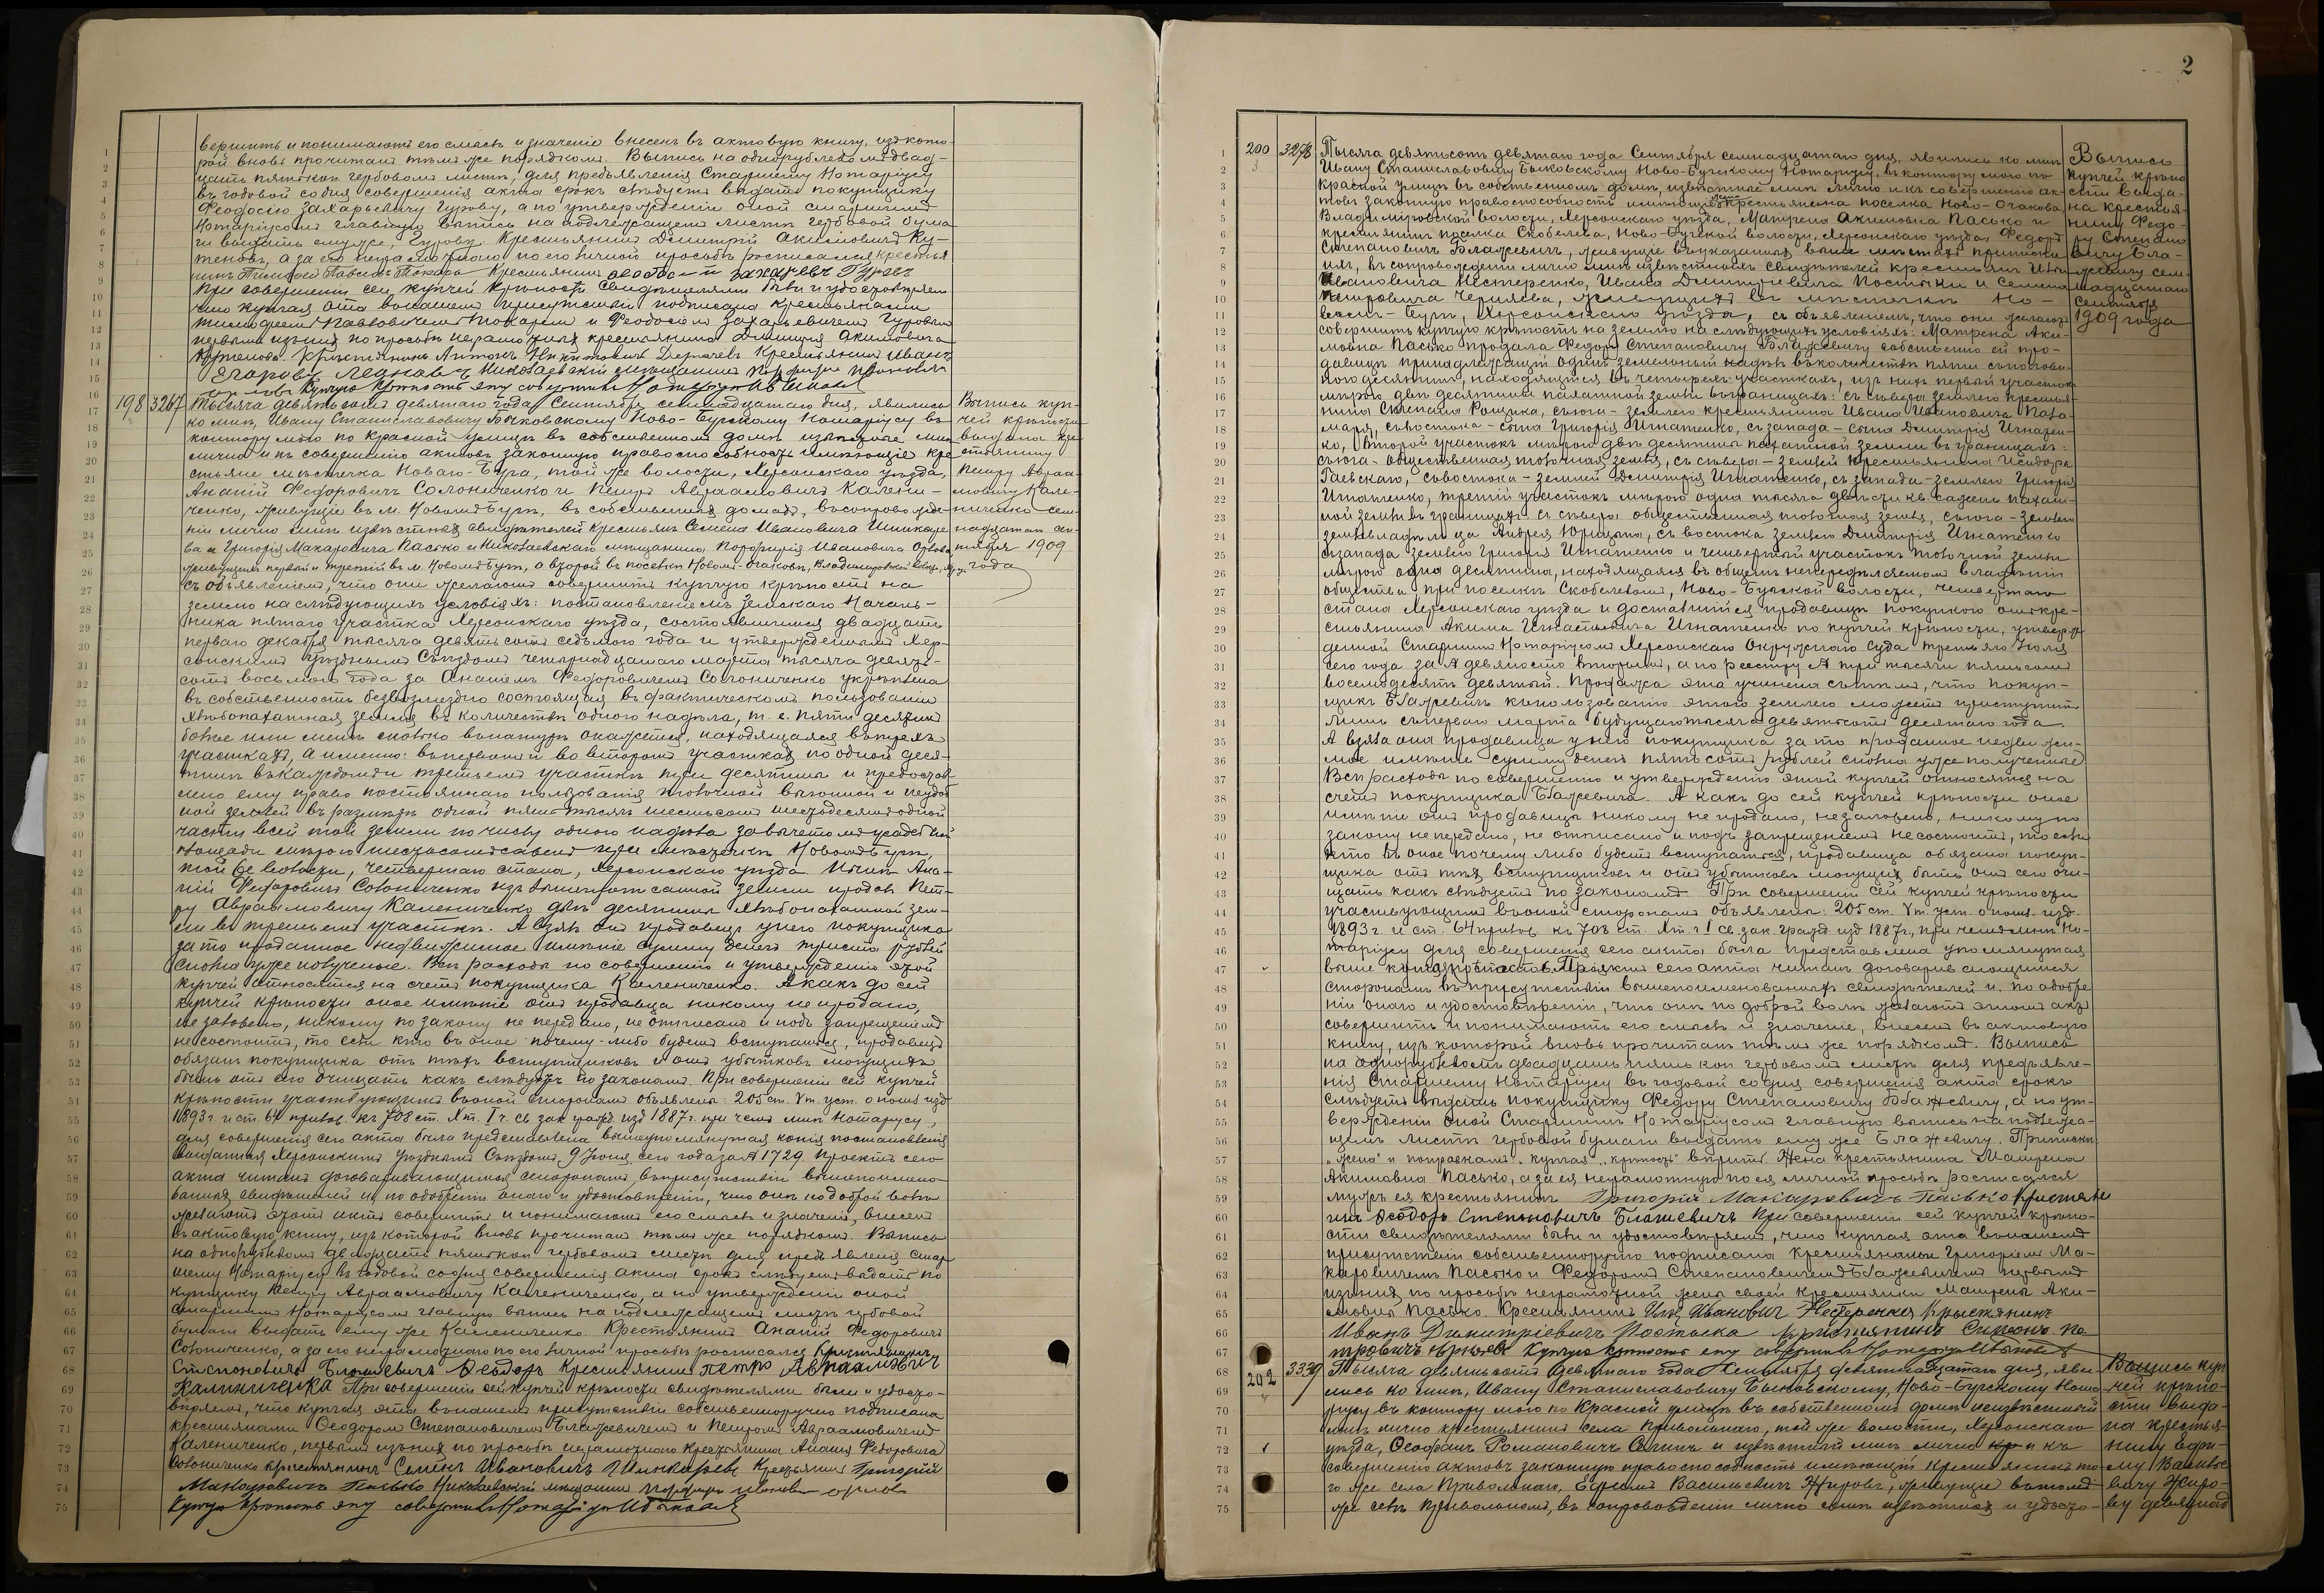 вершить и понимаютъ его смыслъ и значеніе внесенъ въ актовую книгу, изъ кото-
рой вновь прочитанъ тѣмъ же порядкомъ. Выпись на однорублевомъ двад-
цать пять коп. гербовомъ листѣ, для предъявленія Старшему Нотаріусу
въ годовой со дня совершенія акта срокъ слѣдуетъ выдать покупщику
Феодосію Захарьевичу Гурову, а по утвержденіи оной Старшимъ
Нотаріусомъ главную выпись на надлежащемъ листѣ гербовой бума-
ги выдать ему же, Гурову. Крестьянинъ Димитрій Акимовичъ Ку-
теповъ, а за его неграмотного по его личной просьбѣ росписался крестья
нинъ Тимофей Павловъ Токарь Крестьянинъ Захаревъ Гуровъ
При совершеніи сей купчей крѣпости свидѣтелями были и удостовѣряемъ
что купчая эта въ нашемъ присутствіи подписана крестьянами
Тимофеемъ Павловичемъ Токаремъ и Феодосіемъ Захарьевичемъ Гуровымъ
первымъ изъ нихъ по просьбѣ неграмотнаго крестьянина Димитрія Акимовича
Кутепова. Крестьянинъ Антонъ Никитовичъ Крестьянинъ Иванъ
Егоровъ Николаевскій мѣщанинъ
Купчую крѣпость эту совершилъ Нотаріусъ И Быковскій
198 3267 Тысяча девятьсотъ девятаго года Сентября семнадцатаго дня, явились Выпись куп-
ко мнѣ, Ивану Станиславовичу Быковскому Ново-Бугскому Нотаріусу въ чей крѣпости
контору мою по Красной улицѣ въ собственномъ домѣ извѣстные мнѣ выдана кре
лично и къ совершенію актовъ законную правоспособность имѣющіе кре стьянину
стьяне мѣстечка Новаго-Буга, той же волости, Херсонскаго уѣзда, Петру Авраа-
Ананій Федоровичъ Солониченко и Петръ Авраамовичъ Калени- мовичу Кале-
ченко, живущіе въ м. Новомъ Бугѣ, въ собственныхъ домахъ, въ сопровожде- ниченко сем-
ніи лично мнѣ извѣстныхъ свидѣтелей крестьянъ Семена Ивановича Шинкаре надцатаго сен-
ва и Григорія Макаровича Пасько и Николаевскаго мѣщанина, Порфирія Ивановича Орлова тября 1909
живущихъ первый и третій въ м. Новомъ Бугѣ, а второй въ поселкѣ Новомъ-Очаковѣ, Владимировской волости, года
съ объявленіемъ, что они желаютъ совершить купчую крѣпость на
землю на слѣдующихъ условіяхъ: постановленіемъ Земскаго Началь-
ника пятаго участка Херсонскаго уѣзда, состоявшимся двадцать
перваго декабря тысяча девятьсотъ седьмого года и утвержденнымъ Хер-
сонскимъ Уѣзднымъ Съѣздомъ четырнадцатаго марта тысяча девять-
сотъ восьмого года за Ананіемъ Федоровичемъ Солониченко укрѣплена
въ собственность безвозмездно состоящая въ фактическомъ пользованіи
хлѣбопахатная земля въ количествѣ одного надѣла, т. е. пяти десятинъ
болѣе или менѣе сколько въ натурѣ окажется, находящаяся въ трехъ
участкахъ, а именно: въ первомъ и во второмъ участкахъ по одной деся-
тинѣ въ каждомъ и третьемъ участкѣ три десятины и предостав-
лено ему право постояннаго пользованія толочной выгонной и неудоб
ной землей въ размѣрѣ одной пять тысячъ шестьсотъ шестьдесятъ одной
части всей той земли по числу одного надѣла за вычетомъ усадебной
площади мѣрою шестьсотъ сажень при мѣстечкѣ Новомъ Бугѣ,
той же волости, четвертаго стана, Херсонскаго уѣзда. Нынѣ Ана-
ній Федоровичъ Солониченко изъ вышеписанной земли продалъ Пет-
ру Авраамовичу Калениченко двѣ десятины хлѣбопахатной зем-
ли въ третьемъ участкѣ. А взялъ онъ продавецъ у него покупщика
за то проданное недвижимое имѣніе сумму денегъ триста рублей
сполна уже полученые. Всѣ расходы по совершенію и утвержденію этой
купчей относятся на счетъ покупщика Калениченко. А какъ до сей
купчей крѣпости оное имѣніе отъ продавца никому не продано,
не заложено, никому по закону не передано, не отписано и подъ запрещеніемъ
не состоитъ, то если кто въ оное почему-либо будетъ вступаться, продавецъ
обязанъ покупщика отъ тѣхъ вступщиковъ и отъ убытковъ могущихъ
быть отъ сего очищать какъ слѣдуетъ по законамъ. При совершеніи сей купчей
крѣпости участвующимъ въ оной сторонамъ объявлены: 205 ст. V т. уст. о пошл. изд.
1893 г. и ст. 64 прилож. къ 708 ст. X т. I ч. св. зак. гражд. изд 1887 г. при чемъ мнѣ Нотаріусу,
для совершенія сего акта была представлена вышеупомянутая копія постановленія
выданная Херсонскимъ Уѣзднымъ Съѣздомъ, 9 Іюня сего года за № 1729. Проектъ сего
акта читанъ договаривающимся сторонамъ въ присутствіи вышепоимено-
ванныхъ свидѣтелей и, по одобреніи онаго и удостовѣреніи, что онѣ по доброй волѣ
желаютъ этотъ актъ совершить и понимаютъ его смыслъ и значеніе, внесенъ
въ актовую книгу, изъ которой вновь прочитанъ тѣмъ же порядкомъ. Выпись
на однорублевомъ двадцать пять коп гербовомъ листѣ для предъявленія Стар
шему Нотаріусу въ годовой со дня совершенія акта срокъ слѣдуетъ выдать по
купщику Петру Авраамовичу Калениченко, а по утвержденіи оной
Старшимъ Нотаріусомъ главную выпись на надлежащемъ листѣ гербовой
бумаги выдать ему же Калениченко. Крестьянинъ Ананій Федоровичъ
Солониченко, а за его неграмотнаго по его личной просьбѣ росписался крестьянинъ
Степановичъ Блажевичъ Феодоръ Крестьянинъ Петръ Авраамовичъ
Калиниченка При совершеніи сей купчей крѣпости свидѣтелями были и удосто-
вѣряемъ, что купчая эта въ нашемъ присутствіи собственноручно подписана
крестьянами Феодоромъ Степановичемъ Блажевичемъ и Петромъ Авраамовичемъ
Калениченко, первымъ изъ нихъ по просьбѣ неграмотнаго крестьянина Ананія Федоровича
Солониченко крестьянинъ Семенъ Ивановичъ Шинкаревъ Крестьянинъ Григорій
Макаровичъ Пасько Николаевскій мѣщанинъ Порфирій Ивановъ Орловъ
Купчую крѣпость эту совершилъ Нотаріусъ И Быковскій
2
200 3278 Тысяча девятьсотъ девятаго года Сентября семнадцатаго дня, явились ко мнѣ Выпись
Ивану Станиславовичу Быковскому Ново-Бугскому Нотаріусу, въ контору мою по купчей крѣпо
Красной улицѣ въ собственномъ домѣ, извѣстные мнѣ лично и къ совершенію ак- сти выда-
товъ законную правоспособность имѣющіе жена крестьянина поселка Ново-Очакова на крестья-
Владимировской волости, Херсонскаго уѣзда, Матрена Акимовна Пасько и нину Федо-
крестьянинъ поселка Скобелева, Ново-Бугской волости, Херсонскаго уѣзда, Федоръ ру Степано
Степановичъ Блажевичъ, живущіе въ указанныхъ выше мѣстахъ приписки вичу Бла-
ихъ, въ сопровожденіи лично мнѣ извѣстныхъ свидѣтелей крестьянъ Ильи жевичу сем-
Ивановича Нестеренко, Ивана Димитріевича Постыки и Семена надцатаго
Петровича Черняева, живущихъ въ мѣстечкѣ Но- Сентября
вомъ-Бугѣ, Херсонскаго уѣзда, съ объявленіемъ, что они желаютъ 1909 года
совершить купчую крѣпость на землю на слѣдующихъ условіяхъ: Матрена Аки-
мовна Пасько продала Федору Степановичу Блажевичу собственно ей про-
давицѣ принадлежащій одинъ земельный надѣлъ въ количествѣ пяти съ полови-
ною десятинъ, находящійся въ четырехъ участкахъ, изъ нихъ первый участокъ
мѣрою двѣ десятины пахатной земли въ границахъ: съ сѣвера землею крестья-
нина Степана Рощика, съ юга - землею крестьянина Ивана Ивановича Пала-
маря, съ востока - сына Григорія Игнатенко, съ запада - сына Димитрія Игнатен-
ко, второй участокъ мѣрою двѣ десятины пахатной земли въ границахъ:
съ юга - общественная толочная земля, съ сѣвера - землей крестьянина Исидора
Гаевскаго, съ востока - землей Димитрія Игнатенко, съ запада - землею Григорія
Игнатенко, третій участокъ мѣрою одна тысяча двѣсти кв. сажень пахат-
ной земли въ границахъ: съ сѣвера общественная толочная земля, съ юга - землею
землевладѣльца Андрея Юрицына, съ востока землею Димитрія Игнатенко
и запада землею Григорія Игнатенко и четвертый участокъ толочной земли
мѣрою одна десятина, находящаяся въ общемъ нераздѣляемомъ владѣніи
общества при поселкѣ Скобелевомъ, Ново-Бугской волости, четвертаго
стана Херсонскаго уѣзда и доставшійся продавицѣ покупкою отъ кре-
стьянина Акима Игнатьевича Игнатенко по купчей крѣпости, утверж-
денной Старшимъ Нотаріусомъ Херсонскаго Окружного Суда третьяго Іюля
сего года за № девяносто вторымъ, а по реестру № три тысячи пятьсотъ
восемьдесятъ девятый. Продажа эта учинена съ тѣмъ, что покуп-
щикъ Блажевичъ къ пользованію этою землею можетъ приступить
лишь съ перваго марта будущаго тысяча девятьсотъ десятаго года.
А взяла она продавица у него покупщика за то проданное недвижи-
мое имѣніе сумму денегъ пятьсотъ рублей сполна уже полученные
Всѣ расходы по совершенію и утвержденію этой купчей относятся на
счетъ покупщика Блажевича. А какъ до сей купчей крѣпости оное
имѣніе отъ продавицы никому не продано, не заложено, никому по
закону не передано, не отписано и подъ запрещеніемъ не состоитъ, то если
кто въ оное почему либо будетъ вступаться, продавица обязана покуп-
щика отъ тѣхъ вступщиковъ и отъ убытковъ могущихъ быть отъ сего очи-
щать какъ слѣдуетъ по законамъ. При совершеніи сей купчей крѣпости
участвующимъ въ оной сторонамъ объявлены: 205 ст. V т. уст. о пошл. изд.
1893 г. и ст. 64 прилож. къ 708 ст. X т. ч 1 св. зак. гражд. изд 1887 г., при чемъ мнѣ Но-
таріусу для совершенія сего акта была представлена упомянутая
выше купчая крѣпость. Проектъ сего акта читанъ договаривающимся
сторонамъ въ присутствіи вышепоименованныхъ свидѣтелей и, по одобре
ніи онаго и удостовѣреніи, что онѣ по доброй волѣ желаютъ этотъ актъ
совершить и понимаютъ его смыслъ и значеніе, внесенъ въ актовую
книгу, изъ которой вновь прочитанъ тѣмъ же порядкомъ. Выпись
на однорублевомъ двадцать пять коп гербовомъ листѣ для предъявле-
нія Старшему Нотаріусу въ годовой со дня совершенія акта срокъ
слѣдуетъ выдать покупщику Федору Степановичу Блажевичу, а по ут-
вержденіи оной Старшимъ Нотаріусомъ главную выпись на надлежа-
щемъ листѣ гербовой бумаги выдать ему же Блажевичу. Приписки
„жена“ и поправкамъ „купчая“ „крѣпость“ вѣрить. Жена крестьянина Матрена
Акимовна Пасько, а за ея неграмотную по ея личной просьбѣ росписался
мужъ ея крестьянинъ Григорій Макаровичъ Пасько Крестьяни
нъ Феодоръ Степановичъ Блашевичъ При совершеніи сей купчей крѣпо-
сти свидѣтелями были и удостовѣряемъ, что купчая эта въ нашемъ
присутствіи собственноручно подписана Крестьянами Григоріемъ Ма-
каровичемъ Пасько и Федоромъ Степановичемъ Блажевичемъ первымъ
изъ нихъ по просьбѣ неграмотной жены своей крестьянки Матрены Аки-
мовны Пасько. Крестьянинъ Илья Ивановичъ Нестеренко Крыстянинъ
Иванъ Димитріевичъ Постыка Кристиянинъ Симонъ Пе
тровичъ Купчую крѣпость эту совершилъ Нотаріусъ И Быковскій
202 3339 Тысяча девятьсотъ девятаго года Сентября девятнадцатаго дня, яви- Выпись куп
лись ко мнѣ, Ивану Станиславовичу Быковскому, Ново-Бугскому Нота чей крѣпо-
ріусу въ контору мою по Красной улицѣ въ собственномъ домѣ неизвѣстный сти выда-
мнѣ лично крестьянинъ села Привольнаго, той же волости, Херсонскаго на крестья-
уѣзда, Феофанъ Романовичъ и извѣстный мнѣ лично и къ нину Ефи-
совершенію актовъ законную правоспособность имѣющій крестьянинъ то му Василье
го же села Привольнаго, Ефимъ Васильевичъ Жировъ, живущіе въ томъ вичу Жиро-
же селѣ Привольномъ, въ сопровожденіи лично мнѣ извѣстныхъ и удосто- ву девятнад